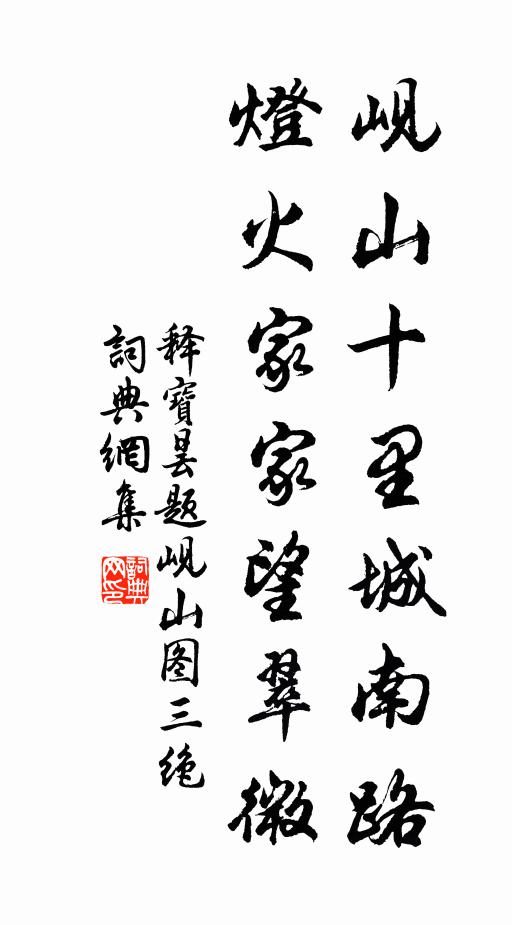 岘山十里城南路
燈火家家望翠微
释寶昙题岘山图三绝
詞典網集
詞典网印